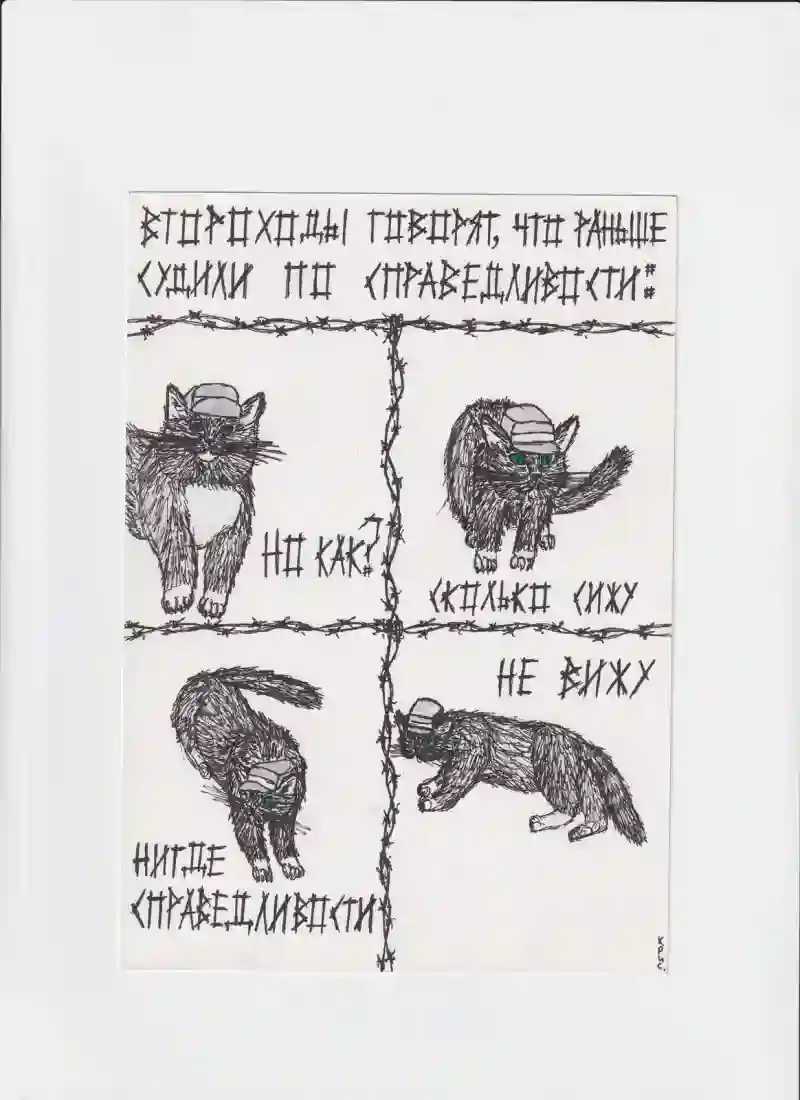 ВТОРОХОДЫ ГОВОРЯТ, ЧТО РАНЬШЕ
СУДИЛИ ПО СПРАВЕДЛИВОСТИ:
НО КАК?
СКОЛЬКО СИЖУ
НИГДЕ
СПРАВЕДЛИВОСТИ
НЕ ВИЖУ
КРИС.